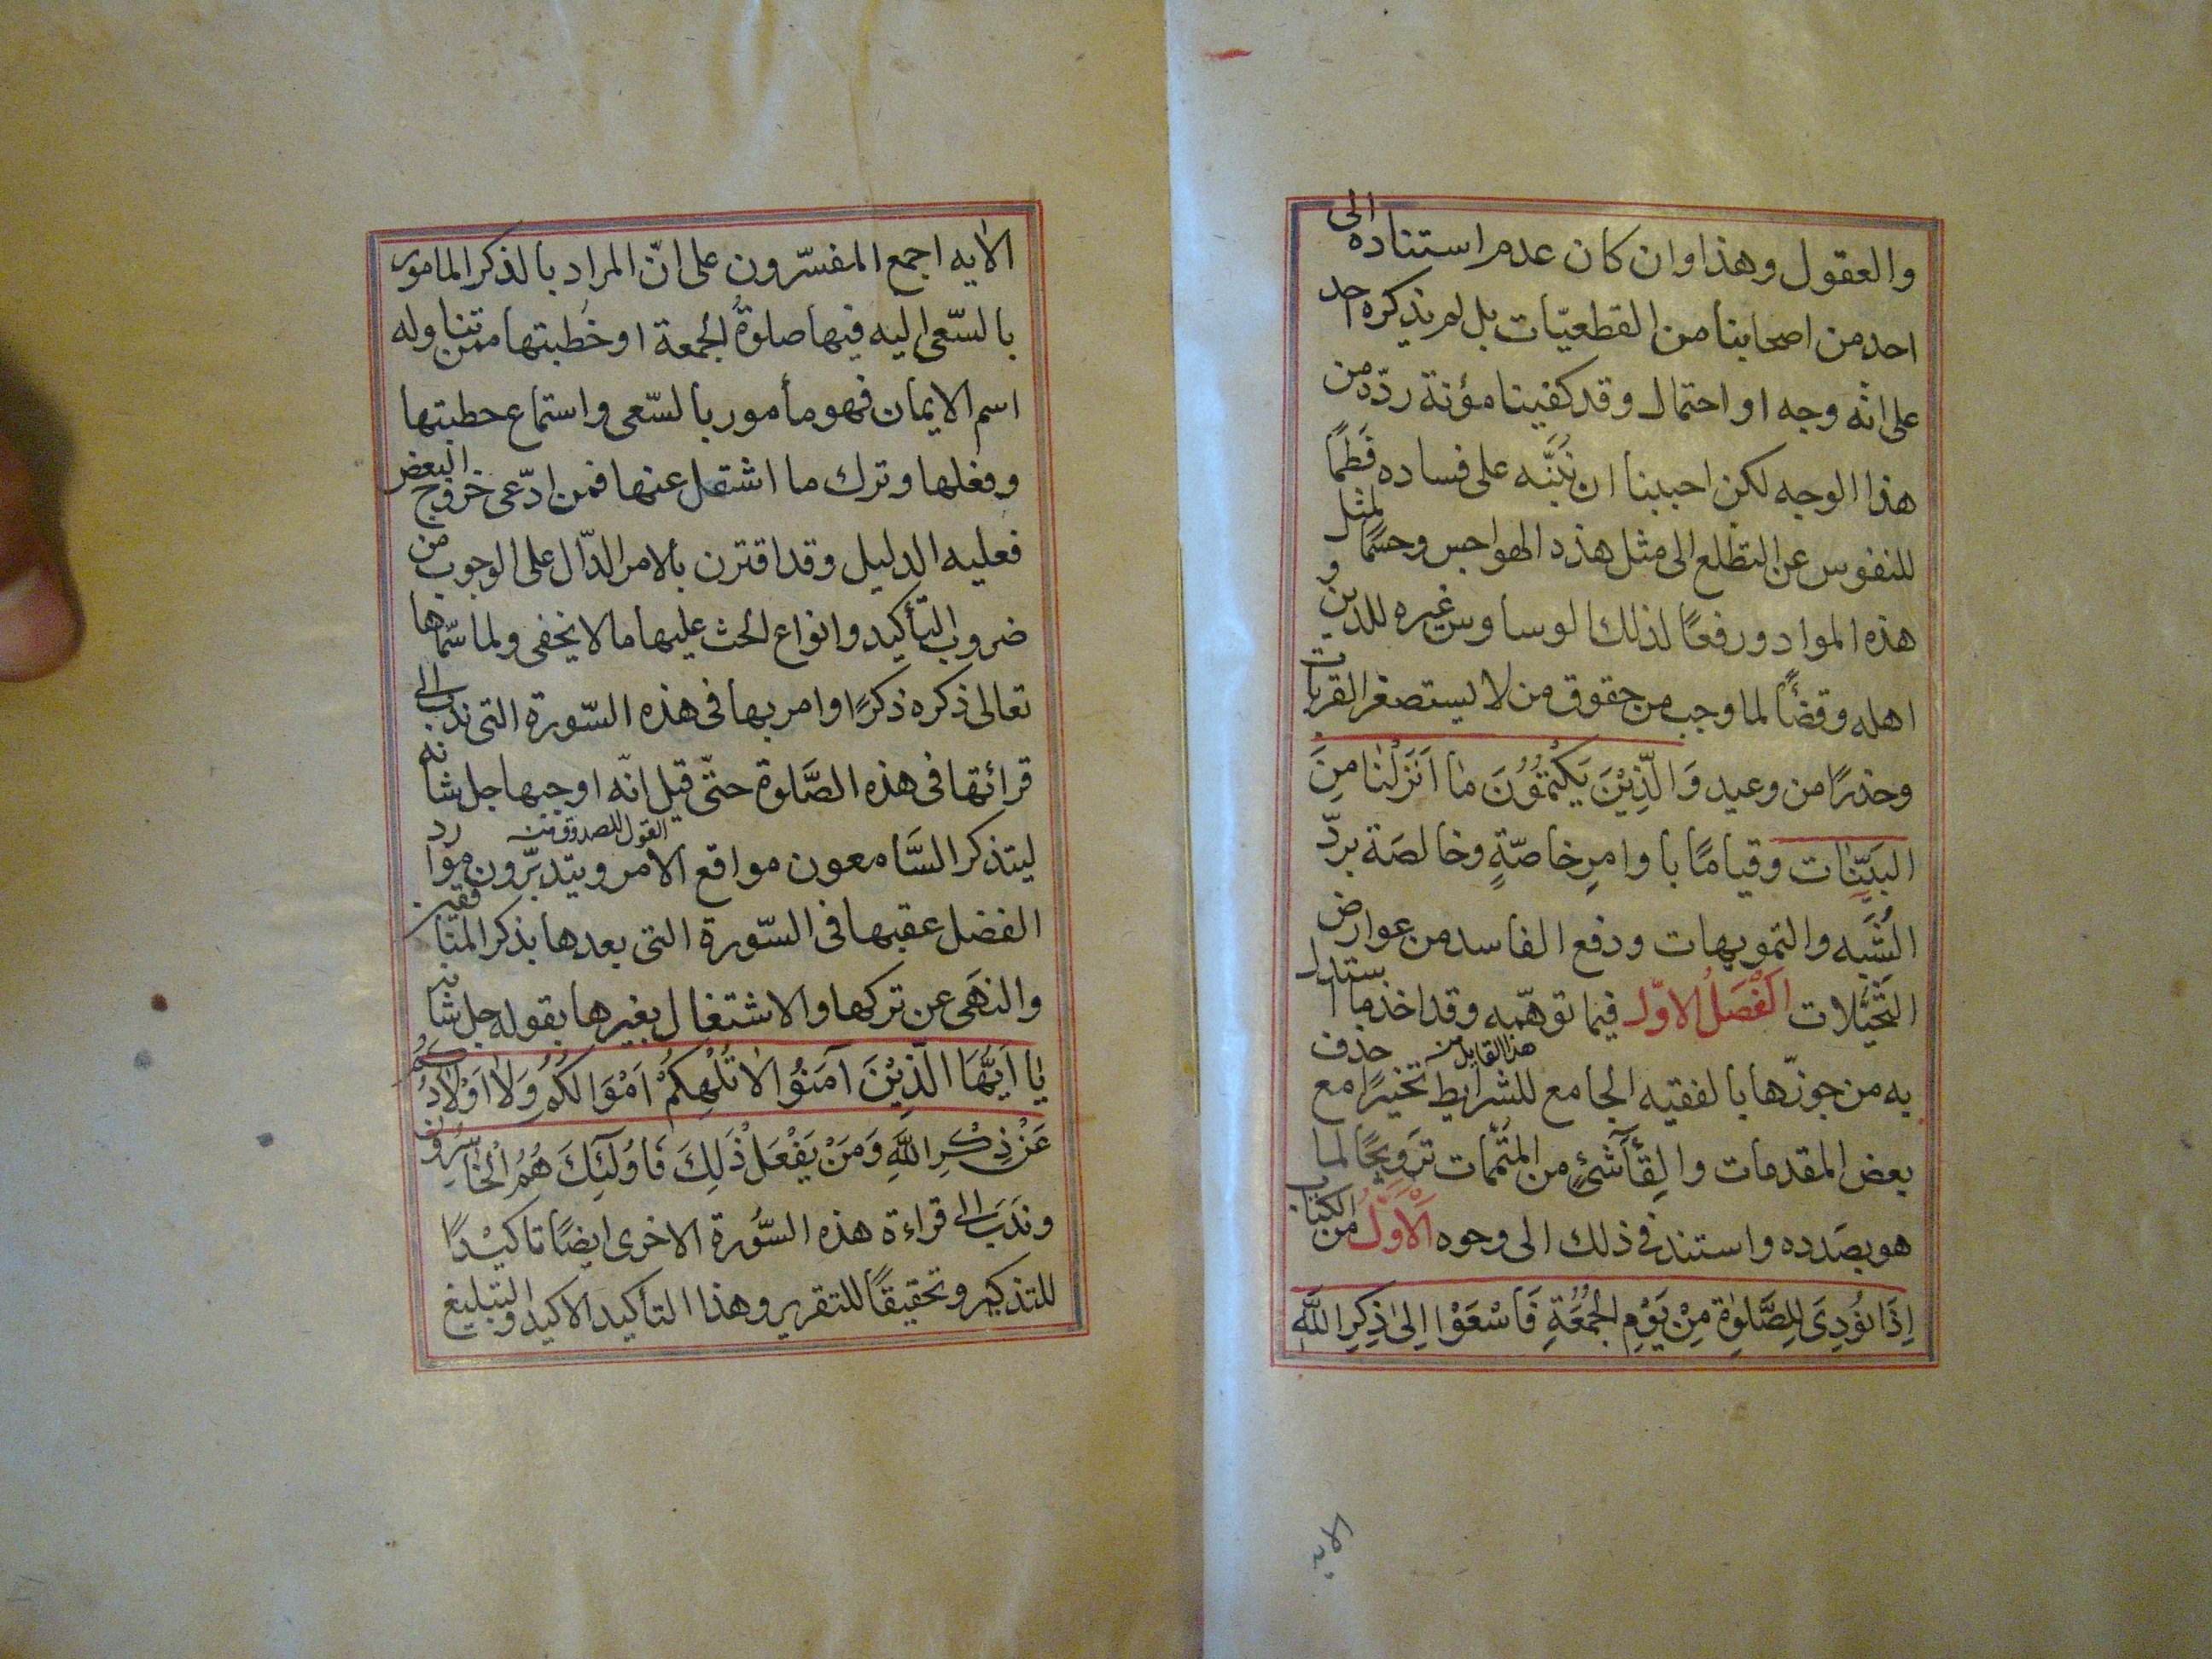 والعقول وهذا وان كان عدم استناده الى
احد من اصحابنا من القطعيّات بل لم يذكره احد
على انّه وجه او احتمال وقد كفينا مؤنة ردّه من
هذا الوجه لكن احببنا ان نُنَبِّه على فساده فَطمًا
للنفوس عن التطلع الى مثل هذه الهواجس وحسمًا لمثل
هذه المواد ورفعًا لذلك الوساوس غيره للدين و
اهله وقضأً لما وجب من حقوق من لا يستصغر القربات
وحذرًا من وعيد وَالَّذِيْنَ يَكْتُمُوُنَ ما اَنْزَلْنا مِنَ
البَيّنَات وقيامًا باوامرِ خاصّةٍ وخالصَة بردّ
الشُّبَه والتمويهات ودفع الفاسد من عوارض
التَّخَيُّلات اَلْفَصْلُ الاوّل فيما توهّمه وقد اخذ ما استدل
هذا القايل من
به من جوزّها بالفقيه الجامع للشرايط تخييرًا مع حذف
بعض المقدمات والِقآَٔ شئٍ من المتمّمات تَرويجًا لما
هو بصَدده واستند فى ذلك الى وجوه اْلاَوَّلُ من الكتاب
اِذَا نُوُدِىَ لِلصَّلوٰةِ مِنْ يَوْمِ الجُمُعَةِ فَاسْعَوْا اِلىٰ ذِكِرِ اللَّهِ
الايه اجمع المفسّرون على انّ المراد بالذكر المامور
بالسّعى اليه فيها صلوةُ الجمعة او خُطبتها ممّن تناوله
اسم الايمان فهو مأمور بالسّعى واستماع حطبتها
وفعلها وترك ما اشتغل عنها فمن ادّعى خروج البعض
فعليه الدليل وقد اقترن بالامر الدّال على الوجوب من
ضروب التأكيد وانواع الحث عليها ما لا يخفى ولما سّماها
تعالى ذكره ذكرًا وامر بها فى هذه السّورة التى ندب الى
قرائتها فى هذه الصَّلوة حتّى قيل انّه اوجبها جل شانه
القول للصدوق منه
ليتذكر السَّامعون مواقع الامر ويتدبّرون موارد
الفضل عقبها فى السّورة التى بعدها بذكر المنافقين
والنهَى عن تركها والاشتغال بغيرها بقوله جل شانه
يٰا اَيُّهَا الَّذِيْنَ آمَنُوُا لاٰ تُلْهِكمُْ اَمْوَالَكُمُْ وَلاٰ اَوْلاٰدُكُمُْ
عَنْ ذِكْرِ اللَّهِ وَمَنْ يَفْعَلْ ذَلِكَ فَاُولَئِكَ هُمُ اْلخٰاسِرُوُنَ
وندَبَ الى قراءة هذه السُّورة الاخرى ايضًا تاكيْدًا
للتذكير وتحقيقًا للتقرير وهذا التأكيد الاكيد والتبليغ